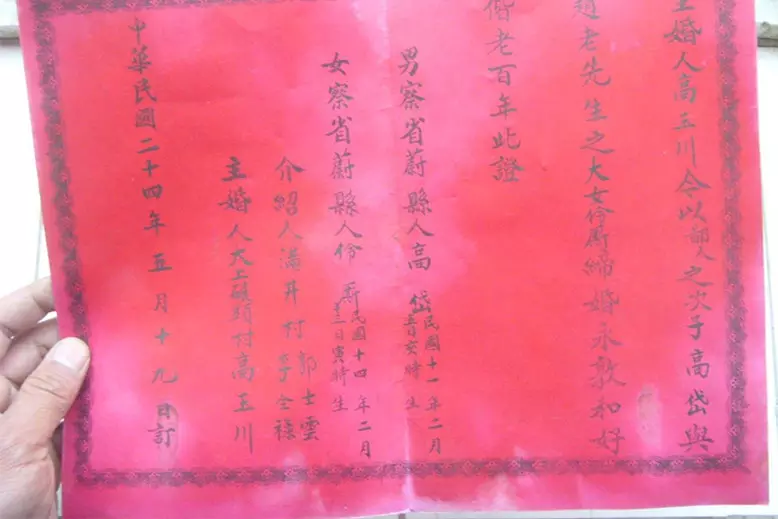 主婚人高玉川今以鄙人之次子高岱與
趙老先生之大女伶斯締婚永敦和好
偕老百年此證
男察省蔚縣人高岱民國十一年二月
亥時生
女察省蔚縣人伶斯民國十四年二月
日寅時生
介紹人滿井村郭士雲
全祿
主婚人大上碾頭村高玉川
中華民國二十四年五月十九日訂